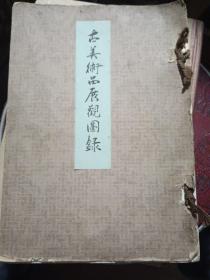 古美術品展觀圖錄